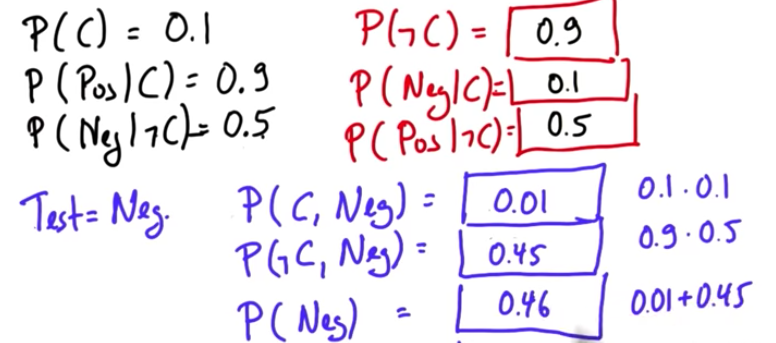 P(C) = 0.1
P(¬C) = 0.9
P(Pos|C) = 0.9
P(Neg|C) = 0.1
P(Neg|¬C) = 0.5
P(Pos|¬C) = 0.5
Test = Neg.
P(C, Neg) = 0.01 0.1 · 0.1
P(¬C, Neg) = 0.45 0.9 · 0.5
P(Neg) = 0.46 0.01 + 0.45